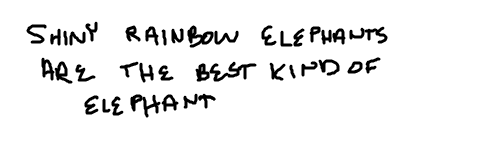 SHINY RAINBOW ELEPHANTS
ARE THE BEST KIND OF
ELEPHANT